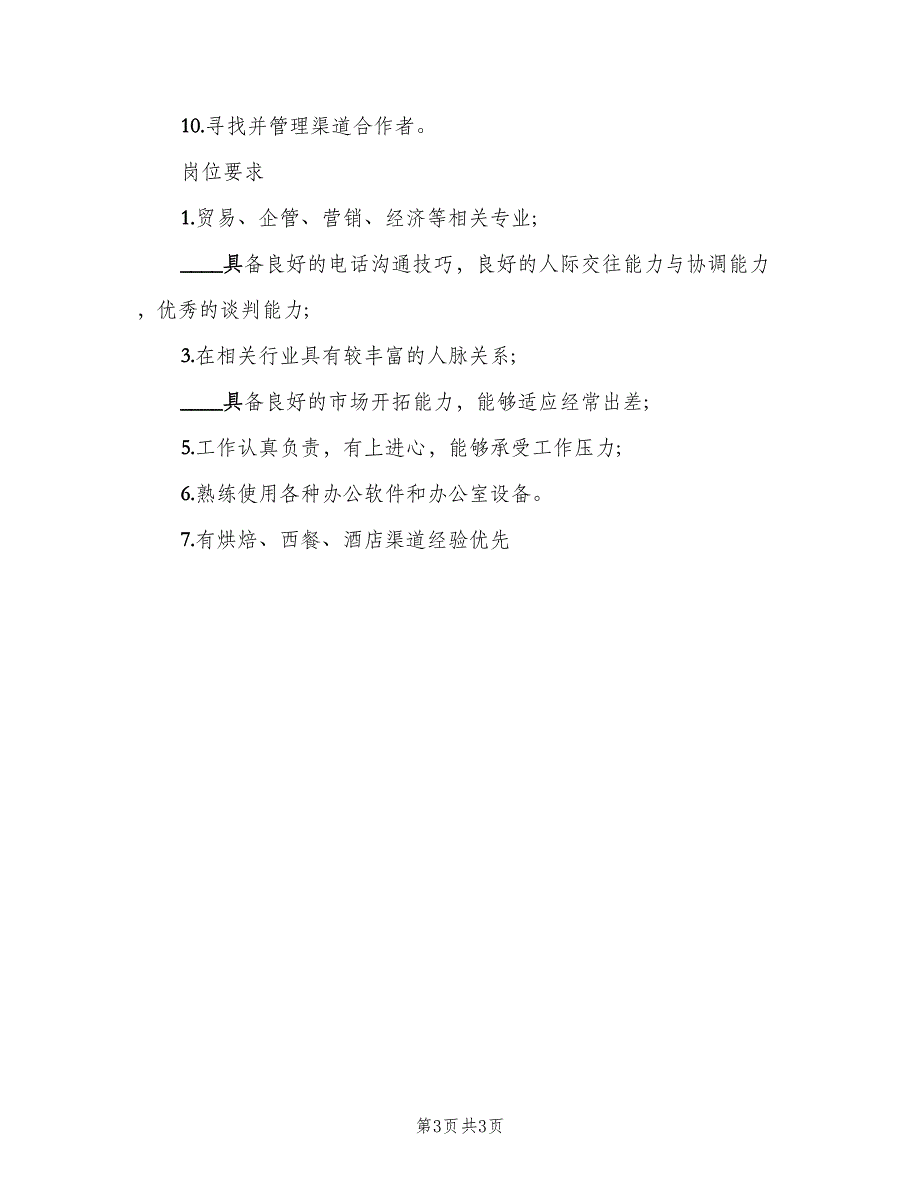 10.寻找并管理渠道合作者。
岗位要求
1.贸易、企管、营销、经济等相关专业;
____具备良好的电话沟通技巧，良好的人际交往能力与协调能力
，优秀的谈判能力;
3.在相关行业具有较丰富的人脉关系;
____具备良好的市场开拓能力，能够适应经常出差;
5.工作认真负责，有上进心，能够承受工作压力;
6.熟练使用各种办公软件和办公室设备。
7.有烘焙、西餐、酒店渠道经验优先
第3页 共3页